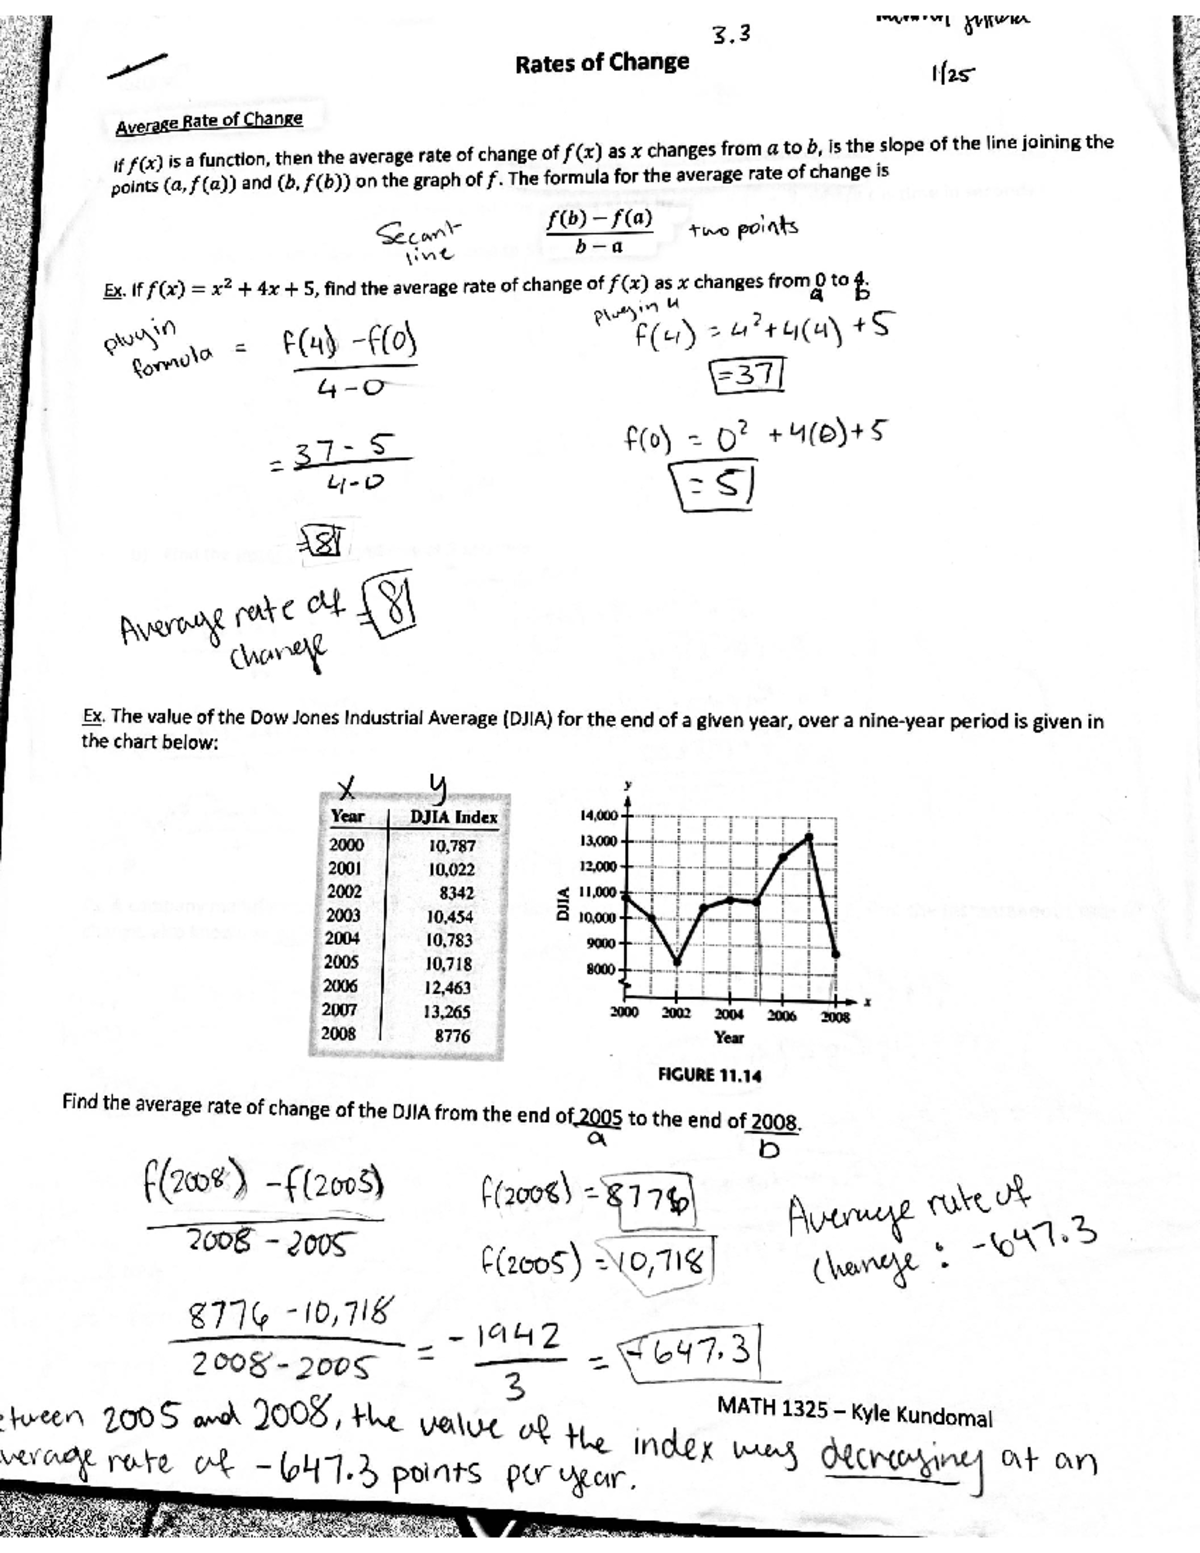 3.3
Rates of Change
1/25
Average Rate of Change
If f(x) is a function, then the average rate of change of f(x) as x changes from a to b, is the slope of the line joining the
points (a, f(a)) and (b, f(b)) on the graph of f. The formula for the average rate of change is
Secant line
f(b) − f(a)
b − a
two points
Ex. If f(x) = x² + 4x + 5, find the average rate of change of f(x) as x changes from 0 to 4.
a b
plug in formula = f(4) - f(0)
4 - 0
plug in 4
f(4) = 4² + 4(4) + 5
= 37
= 37 - 5
4 - 0
f(0) = 0² + 4(0) + 5
= 5
= 8
Average rate of change = 8
Ex. The value of the Dow Jones Industrial Average (DJIA) for the end of a given year, over a nine-year period is given in
the chart below:
x y
Year DJIA Index
2000 10,787
2001 10,022
2002 8342
2003 10,454
2004 10,783
2005 10,718
2006 12,463
2007 13,265
2008 8776
y
14,000
13,000
12,000
11,000
10,000
9000
8000
DJIA
2000 2002 2004 2006 2008
x
Year
FIGURE 11.14
Find the average rate of change of the DJIA from the end of 2005 to the end of 2008.
a b
f(2008) - f(2005)
2008 - 2005
f(2008) = 8776
f(2005) = 10,718
Average rate of
change : -647.3
8776 - 10,718
2008 - 2005
= -1942
3
= -647.3
MATH 1325 – Kyle Kundomal
etween 2005 and 2008, the value of the index was decreasing at an
verage rate of -647.3 points per year.